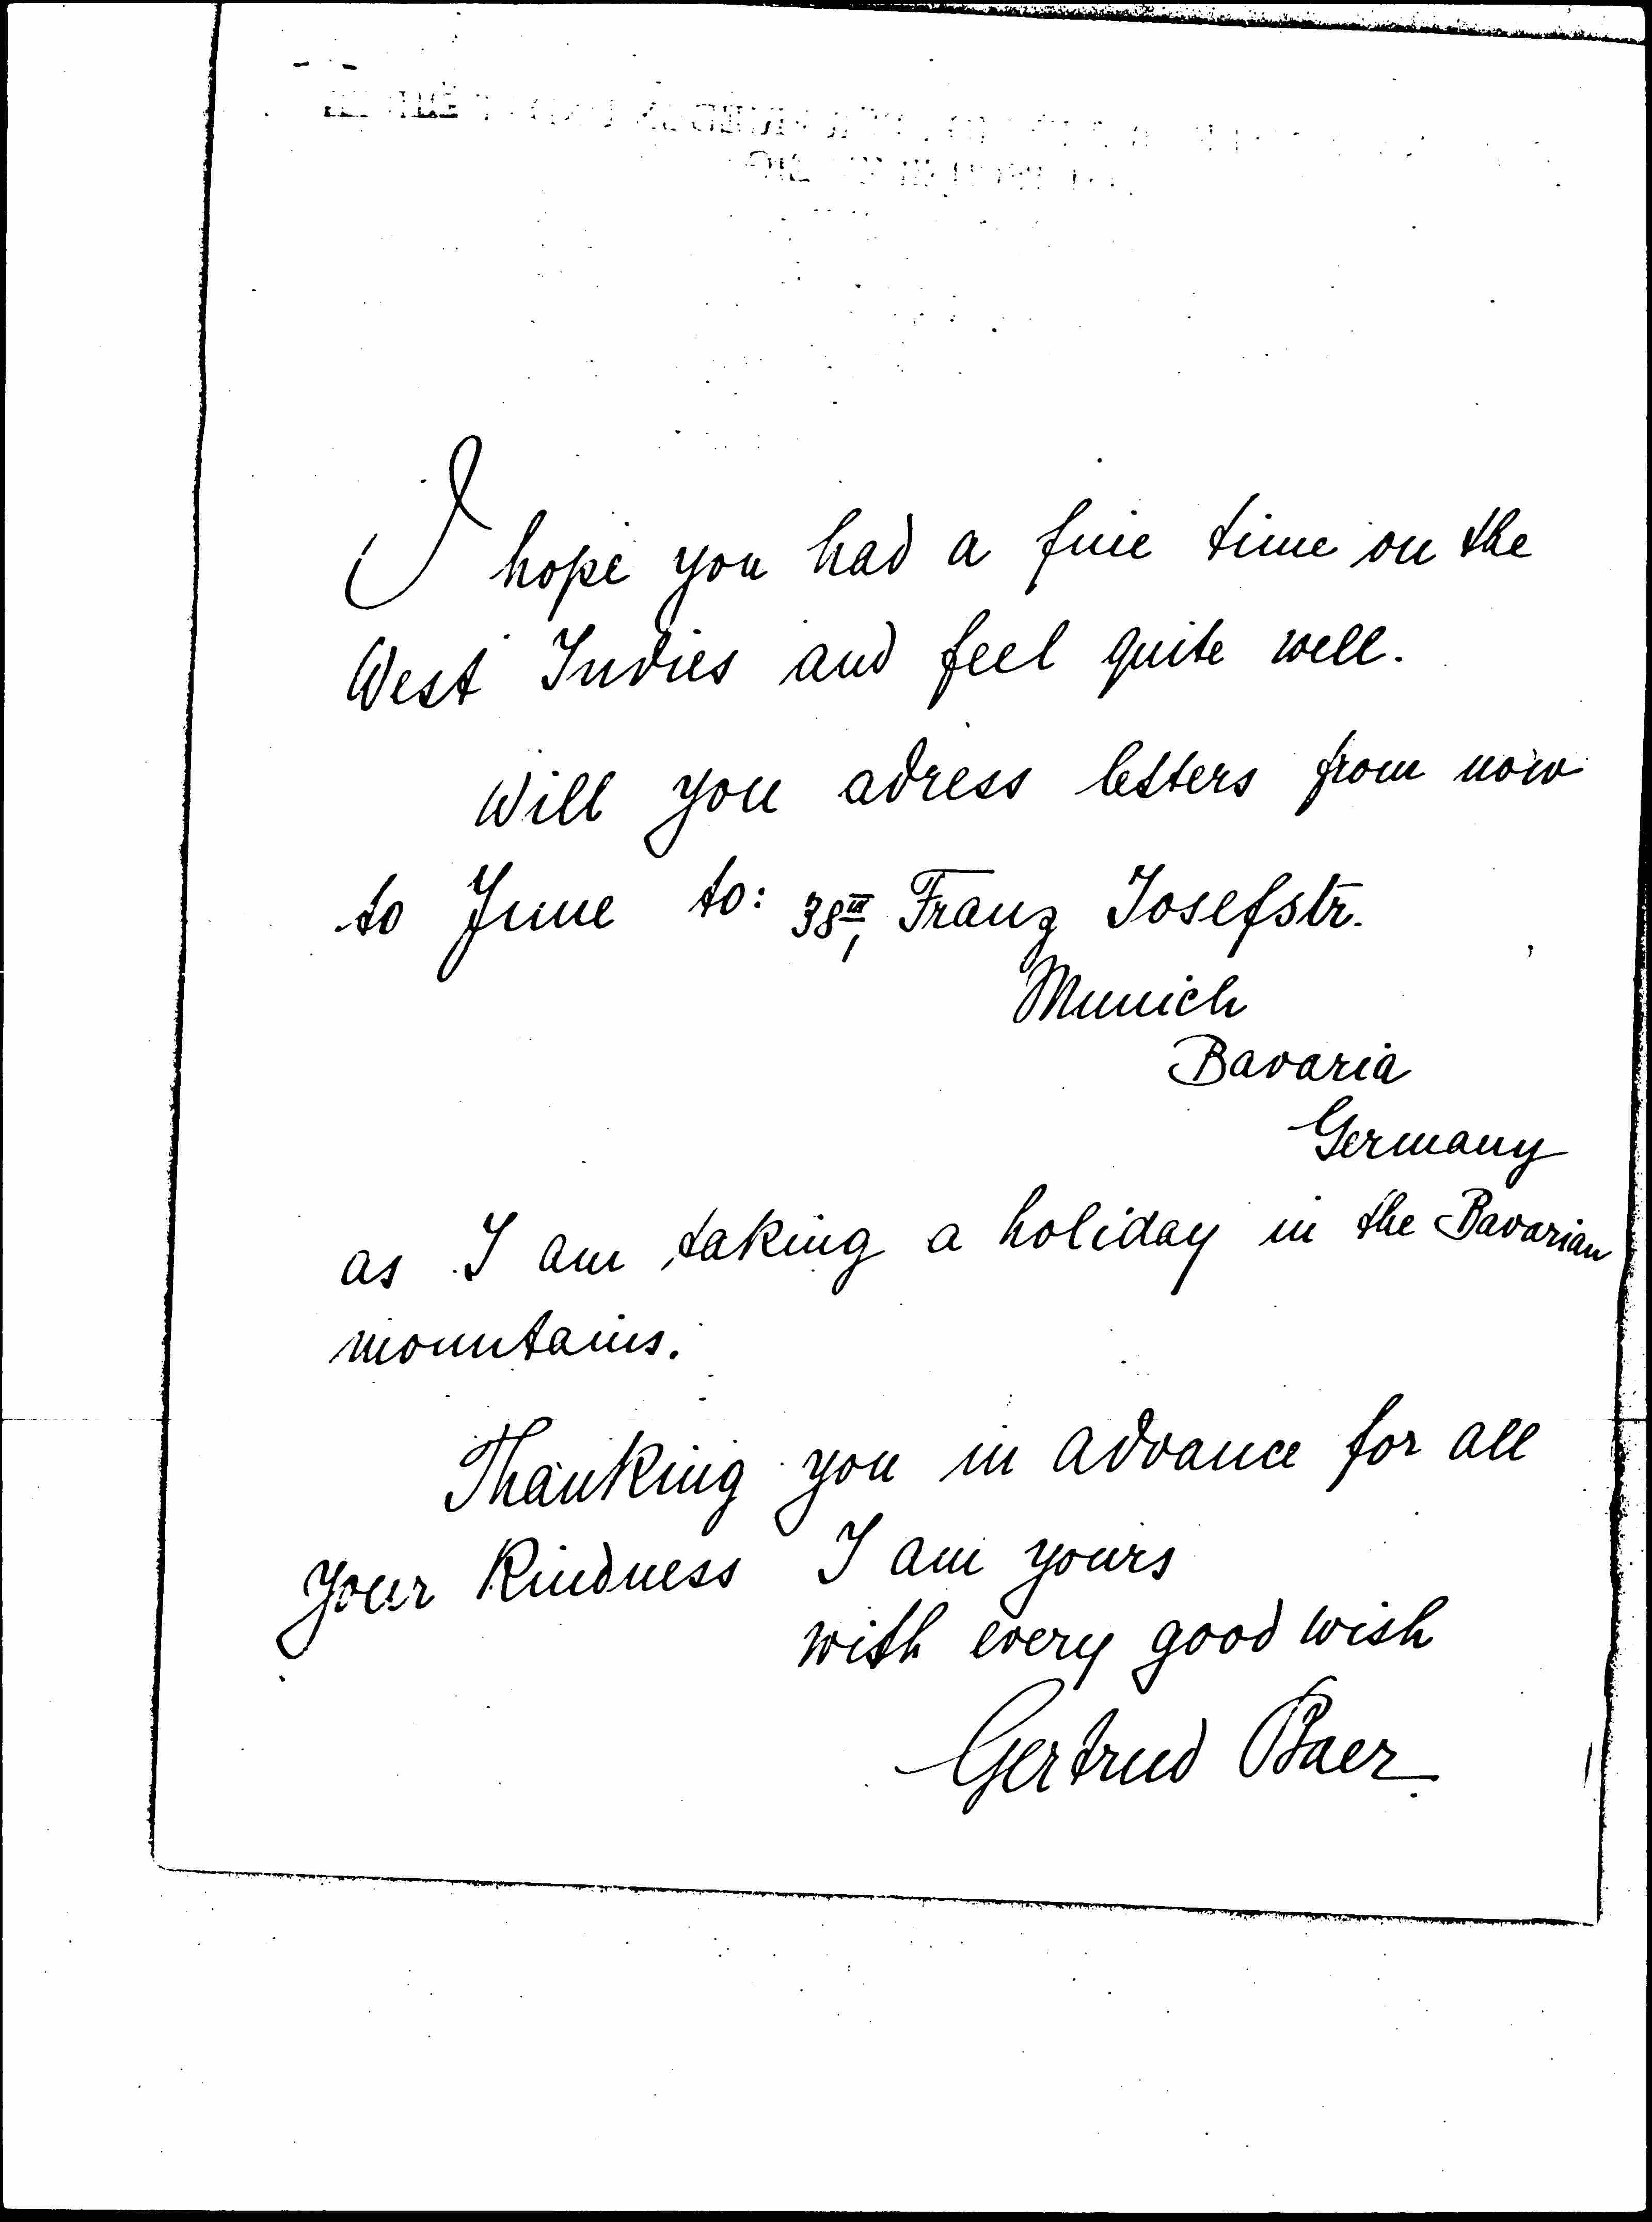 I hope you had a fine time on the
West Indies and feel quite well.
Will you adress letters from now
to June to: 38III, Franz Josefstr.
Munich
Bavaria
Germany
as I am taking a holiday in the Bavarian
mountains.
Thanking you in advance for all
your kindness I am yours
with every good wish
Gertrud Baer